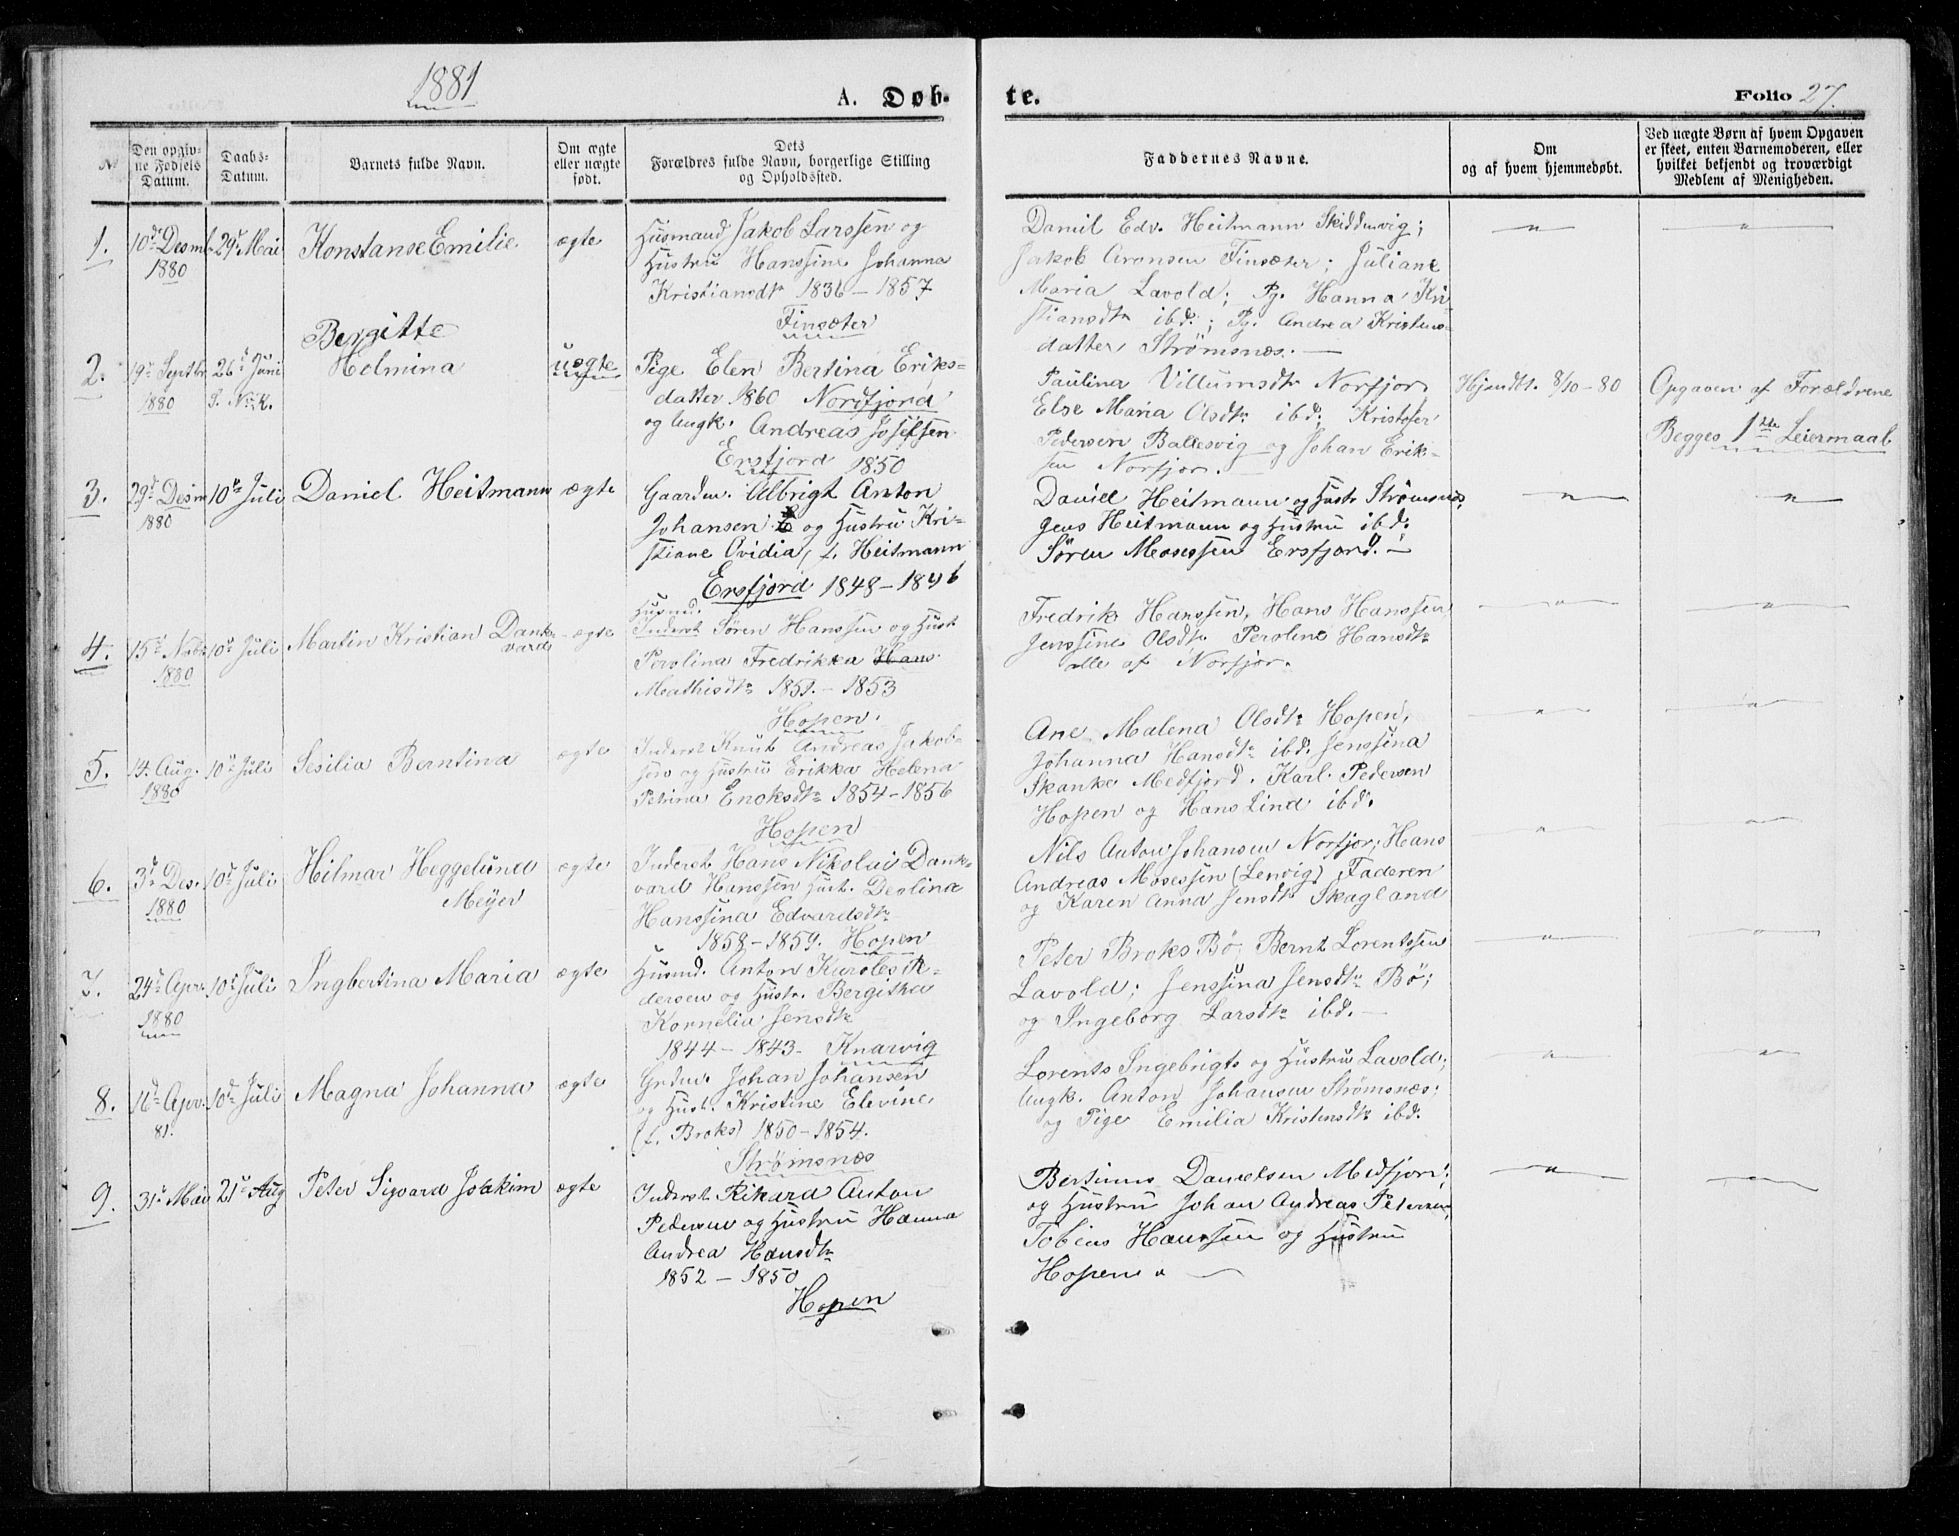 1881
A. Døb-
te.
Folio 27.
№
Den opgiv-
ne Fødsels
Datum.
Daabs-
Datum.
Barnets fulde Navn.
Om ægte
eller uægte
født.
Dets
Forældres fulde Navn, borgerlige Stilling
og Opholdssted.
Faddernes Navne.
Om
og af hvem hjemmedøbt.
Ved uægte Børn af hvem Opgaven
er skeet, enten Barnemoderen, eller
hvilket bekjendt og troværdigt
Medlem af Menigheden.
1.
10de Desmb
1880
29de Mai
Konstanse Emilie
ægte
Husmand Jakob Larssen og
Hustru Hanssine Johanna
Kristiansdtr 1836 – 1857
Finsæter
Daniel Edv. Heitmann
Jakob Aronsen Finsæter; Juliane
Maria Lavold; Pg. Hanna Kri
stiansdtr ibd.; Pg. Andrea Kristens-
datter, Strømsnes. —
— " —
— " —
2.
19de Septbr
1880
26de Juni
S. N. K.
Bergitte
Helmina
uægte
Pige Elen Bertina Eriks-
datter 1860 Nordfjord
og Ungk. Andreas Josefsen
Ersfjord 1850
Paulina Villumsdtr Norfjor
Else Maria Olsdtr ibd; Kristofer
Pedersen Ballesvig og Johan Erik-
sen Norfjor.
Hjemdbt. 8/10 – 80
Opgaven af Forældrene
Begges 1ste Leiermaal
3.
29de Desm
1880
10de Juli
Daniel Heitmann
ægte
Gaardm. Albrigt Anton
Johansen og Hustru Kri-
stiane Ovidia, f. Heitmann
Ersfjord 1848 – 1846
Daniel Heitmann og Hustr Strømsnes,
Jens Heitmann og Hustru ibd.
Søren Mosessen Ersfjord. —
— " —
— " —
4.
15de Nobr
1880
10de Juli
Martin Kristian Dank-
vard
ægte
Husmd.
Inderst Søren Hanssen og Hust
Perolina Fredrikka Hans
Mathisdtr 1851. – 1853
Hopen.
Fredrik Hanssen, Hans Hanssen
Jenssine Olsdtr Peroline Hansdtr
alle af Norfjor.
— " —
— " —
5.
14. Aug.
1880
10de Juli
Sesilia Berntina
ægte
Inderst Knut Andreas Jakob-
sen og Hustru Erikka Helena
Petrina Enoksdtr 1854 – 1856
Hopen
Ane Malena Olsdtr Hopen,
Johanna Hansdtr ibd. Jenssina
Skanke Medfjord. Karl Pedersen
Hopen og Hans Lind ibd.
— " —
— " —
6.
3de Des.
1880
10de Juli
Hilmar Heggelund
Meyer
ægte
Inderst Hans Nikolai Dank-
vard Hanssen Hust. Deolina
Hanssina Edvardsdtr
1858 – 1859. Hopen
Nils Anton Johansen Norfjor; Hans
Andreas Mosessen (Lenvig) Faderen
og Karen Anna Jensdtr Skagland
— " —
— " —
7.
24de Apr.
1880
10de Juli
Ingbertina Maria
ægte
Husmd. Anton Kuroles P-
dersen og Hustr. Bergitha
Kornelia Jensdtr
1844 – 1843. Knarvig
Peter Broks Bø, Bernt Lorentssen
Lavold; Jenssina Jensdtr Bø;
og Ingeborg Larsdtr ibd. —
— " —
— " —
8.
16de Apr.
81.
10de Juli
Magna Johanna
ægte
Grdm. Johan Johansen
og Hust. Kristine Elevine
(f. Broks) 1850 – 1854.
Strømsnæs
Lorents Ingebrigts og Hustru Lavold;
Ungk. Anton Johansen Strømsnæs;
og Pige Emilia Kristensdtr ibd.
— " —
— " —
9.
31de Mai
21de Aug
Peter Sigvard Joakim
ægte
Inderst Rikard Anton
Pedersen og Hustru Hanna
Andrea Hansdtr
1852 – 1850
Hopen
Bertinus Danielsen Medfjord;
og Hustru Johan Andreas Petersen,
Tobias Hanssen og Hustru
Hopen. —
— " —
— " —